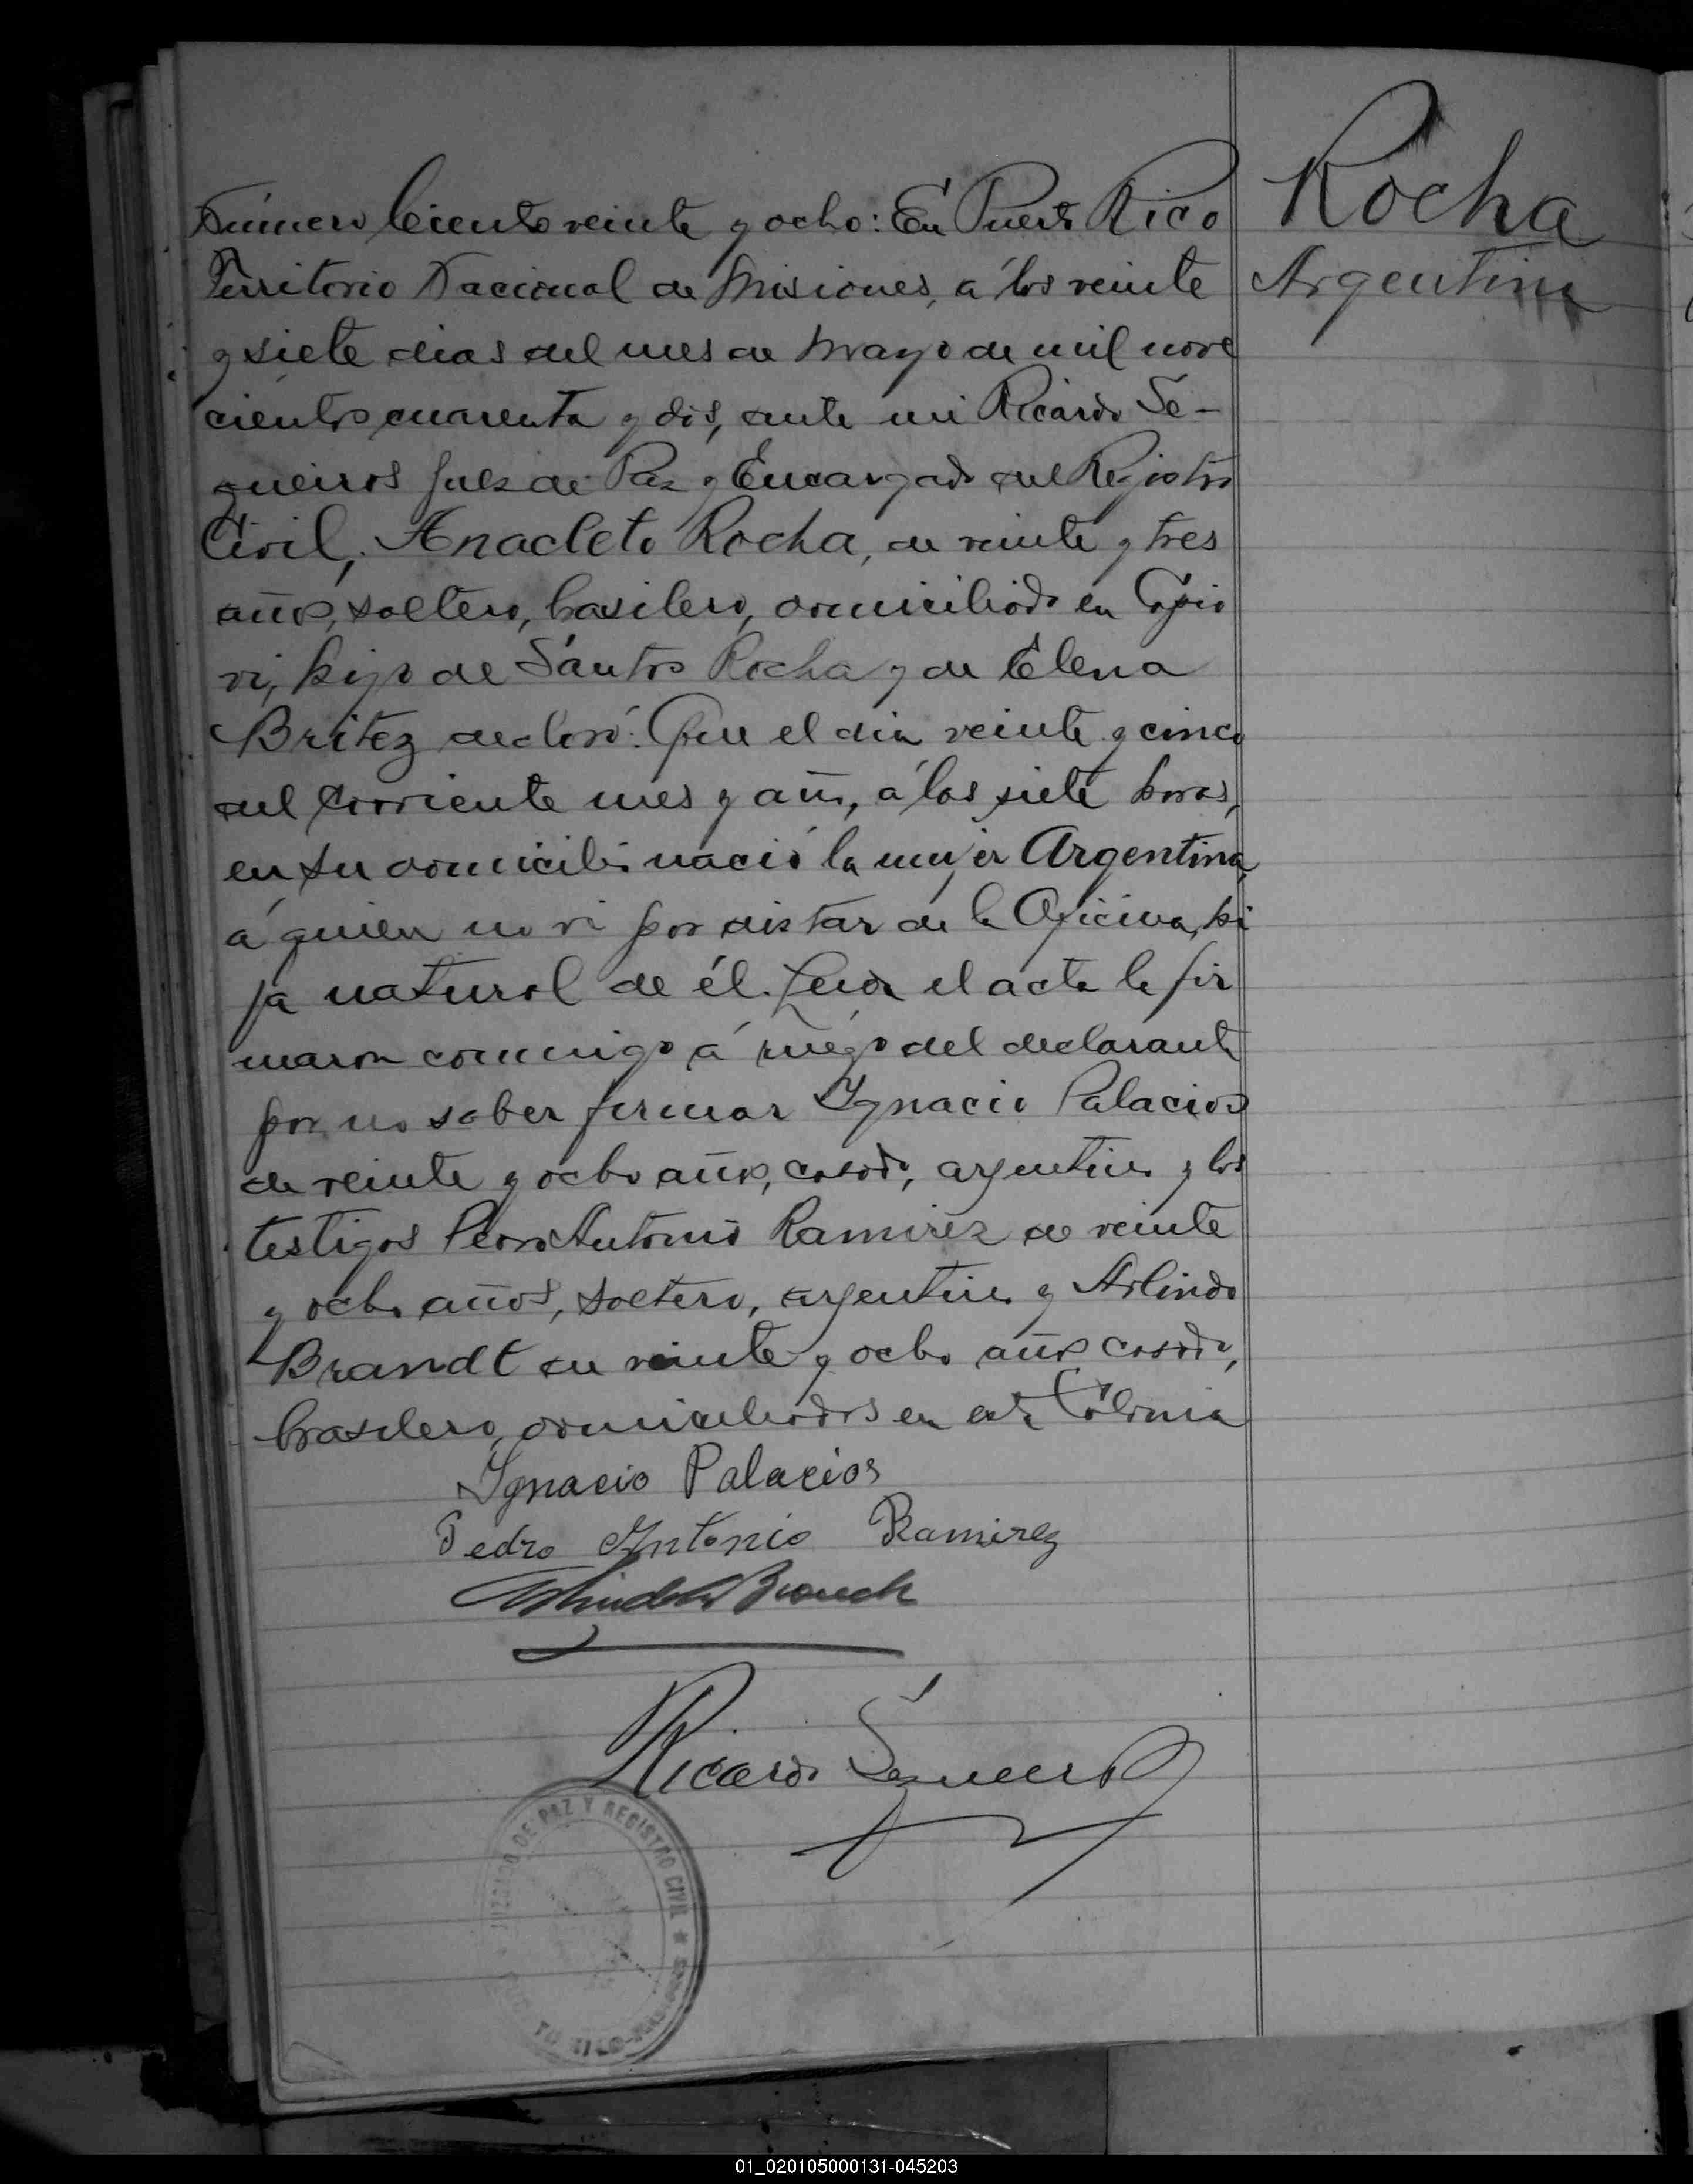 Número Ciento veinte y ocho: En Puerto Rico
Territorio Nacional de Misiones, á los veinte
y siete dias del mes de Mayo de mil nove
cientos cuarenta y dos, ante mi Ricardo Se-
queiros Juez de Paz y Encargado del Registro
Civil, Anacleto Rocha, de veinte y tres
años, soltero, brasilero, domiciliado en Capio
vi, hijo de Santos Rocha y de Elena
Britez declaró: Que el dia veinte y cinco
del corriente mes y año, á las siete horas,
en su domicilio nació la mujer Argentina,
á quien no vi por distar de la Oficina, hi
ja natural de él. Leida el acta la fir
maron conmigo á ruego del declarante
por no saber firmar Ignacio Palacios
de veinte y ocho años, casado, argentino y los
testigos Pedro Antonio Ramirez de veinte
y ocho años, soltero, argentino y Arlindo
Brandt de veinte y ocho años casado,
brasilero, domiciliados en esta Colonia
Ignacio Palacios
Pedro Antonio Ramirez
Arlindo
Ricardo Sequeiros
JUZGADO DE PAZ Y REGISTRO CIVIL
Rocha
Argentina
01_020105000131-045203